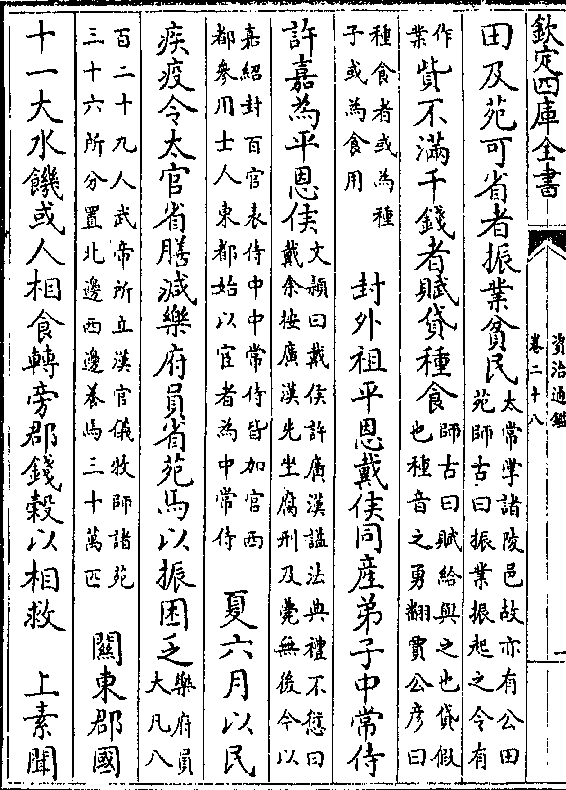 欽定四庫全書
資治通鑑
卷二十八
一
田及苑可省者振業貧民太常掌諸陵邑故亦有公田
苑師古曰振業振起之令有
作
業貲不滿千錢者賦貸種食師古曰賦給與之也貸假
也種音之勇翻賈公彦曰
種食者或為種
子或為食用 封外祖平恩戴侯同產弟子中常侍
許嘉為平恩侯文穎曰戴侯許廣漢謚法典禮不愆曰
戴余按廣漢先坐腐刑及薨無後今以
嘉紹封百官表侍中中常侍皆加官西
都參用士人東都始以宦者為中常侍 夏六月以民
疾疫令太官省膳減樂府員省苑馬以振困乏樂府員
大凡八
百二十九人武帝所立漢官儀牧師諸苑
三十六所分置北邊西邊養馬三十萬匹 關東郡國
十一大水饑或人相食轉旁郡錢穀以相救 上素聞